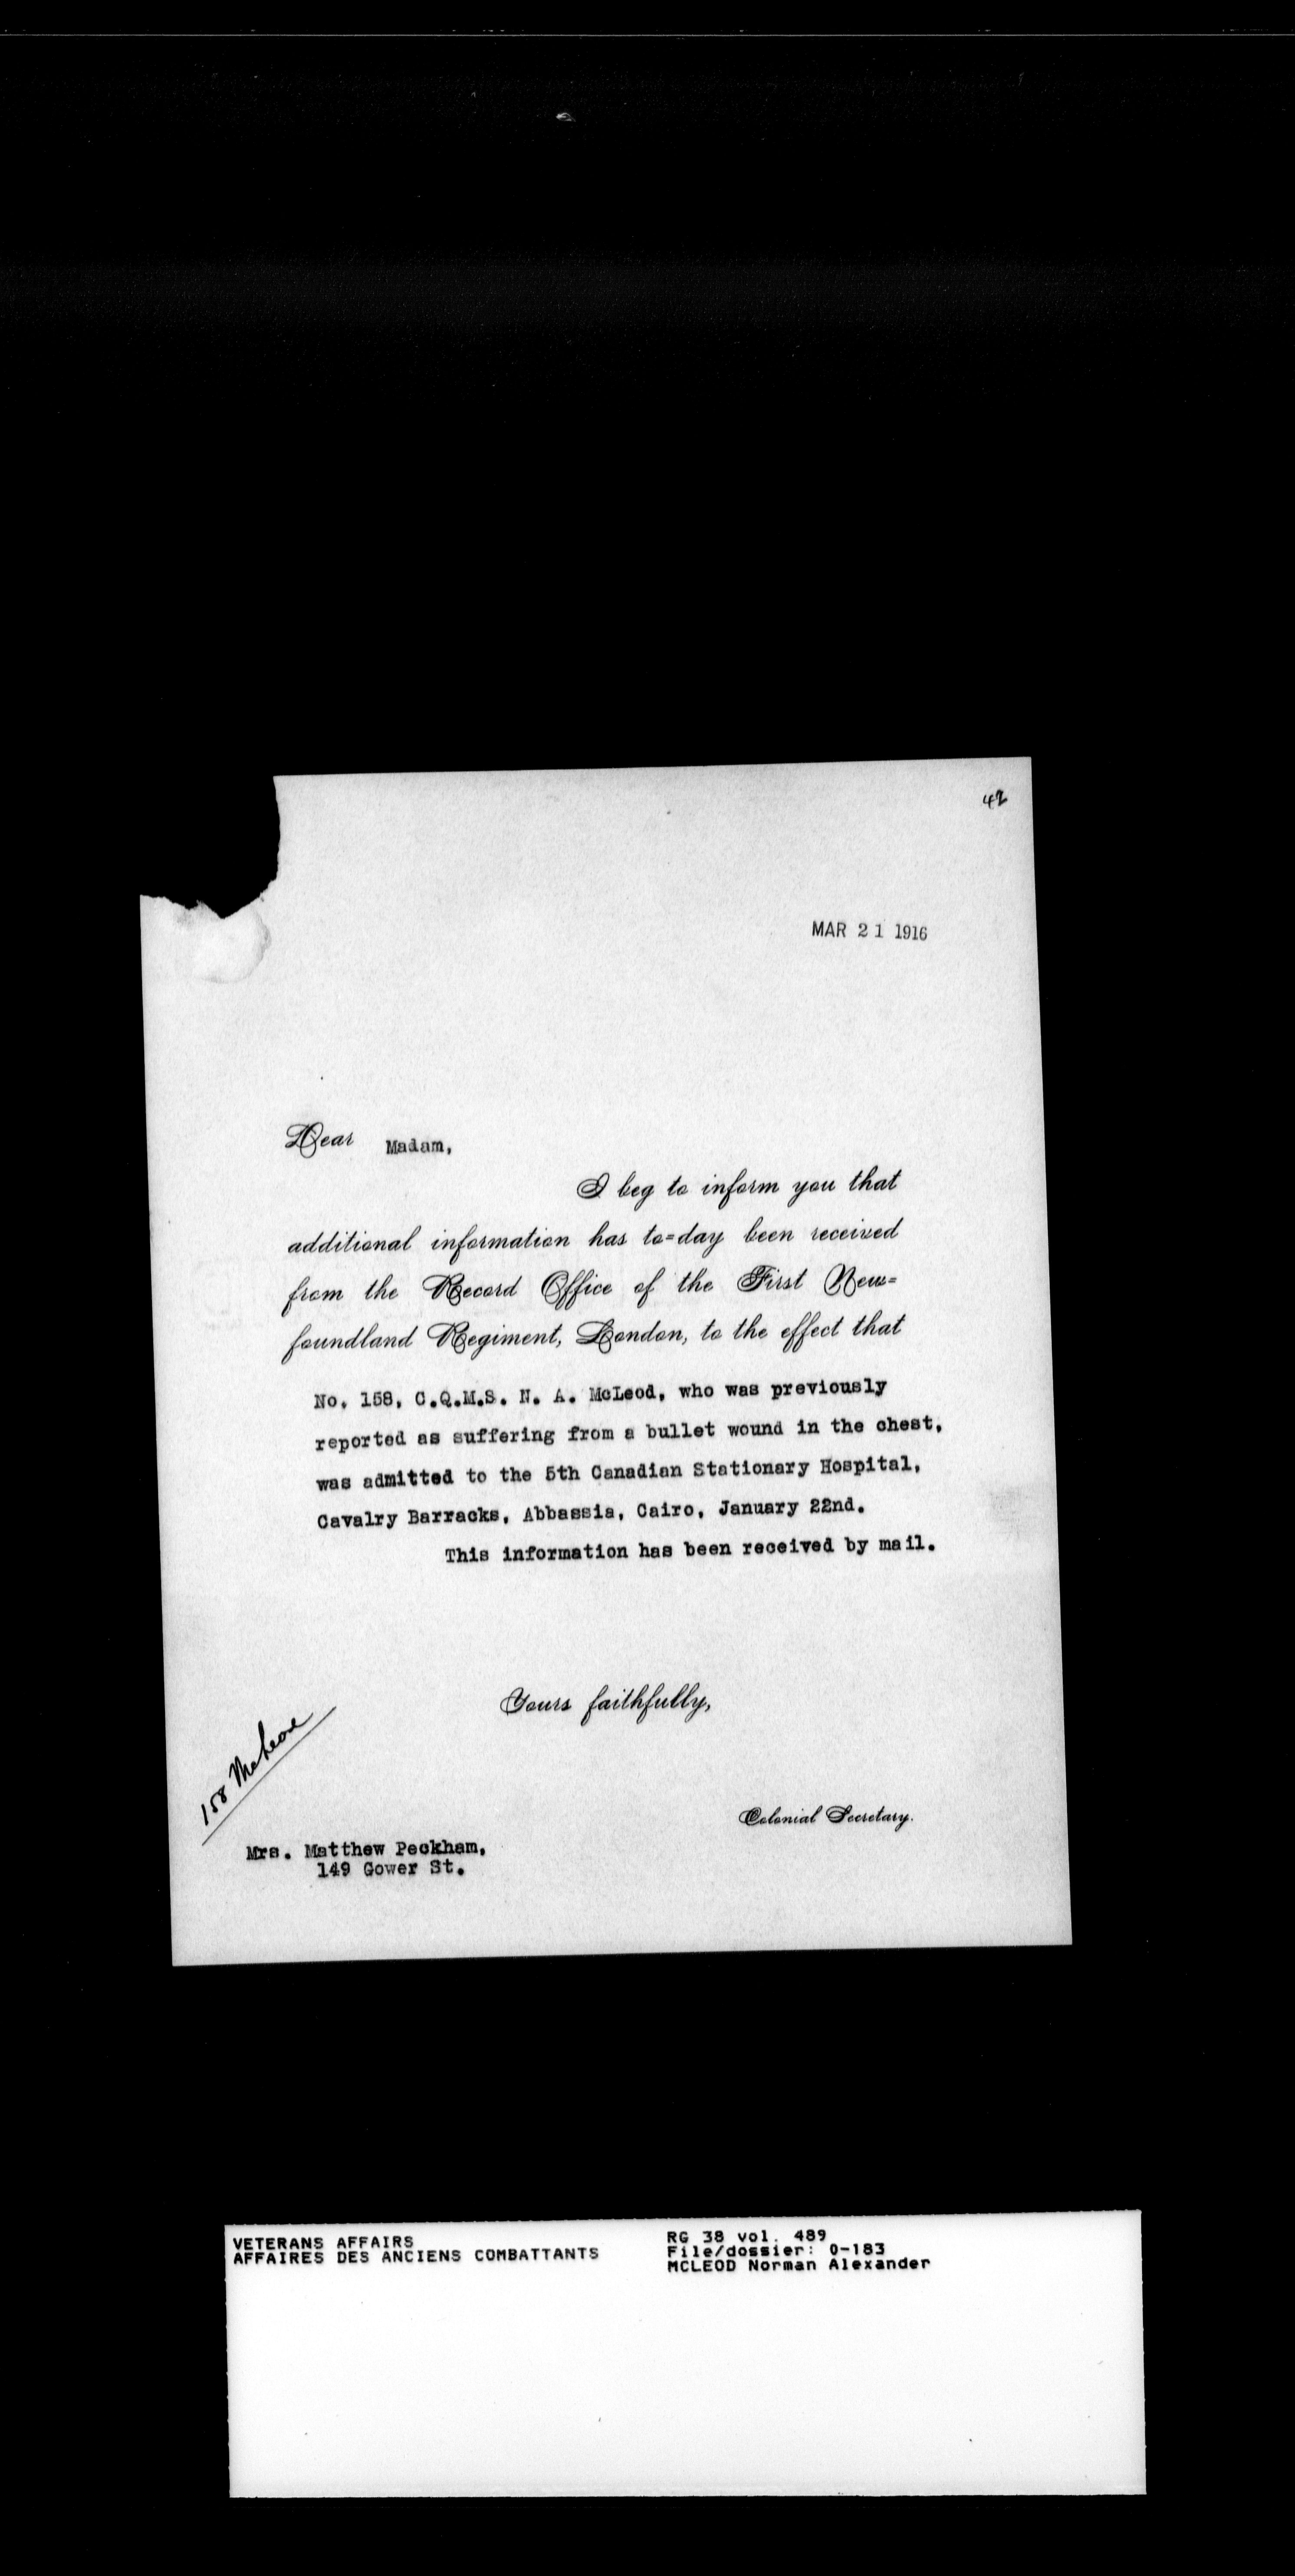 42
MAR 21 1916
Dear Madam,
I beg to inform you that
additional information has to=day been received
from the Record Office of the First New=
foundland Regiment, London, to the effect that
No. 158, C.Q.M.S. N. A. McLeod, who was previously
reported as suffering from a bullet wound in the chest,
was admitted to the 5th Canadian Stationary Hospital,
Cavalry Barracks, Abbassia, Cairo, January 22nd.
This information has been received by mail.
Yours faithfully,
158 McLeod
Colonial Secretary.
Mrs. Matthew Peckham,
149 Gower St.
VETERANS AFFAIRS
AFFAIRES DES ANCIENS COMBATTANTS
RG 38 vol. 489
File/dossier: 0-183
MCLEOD Norman Alexander